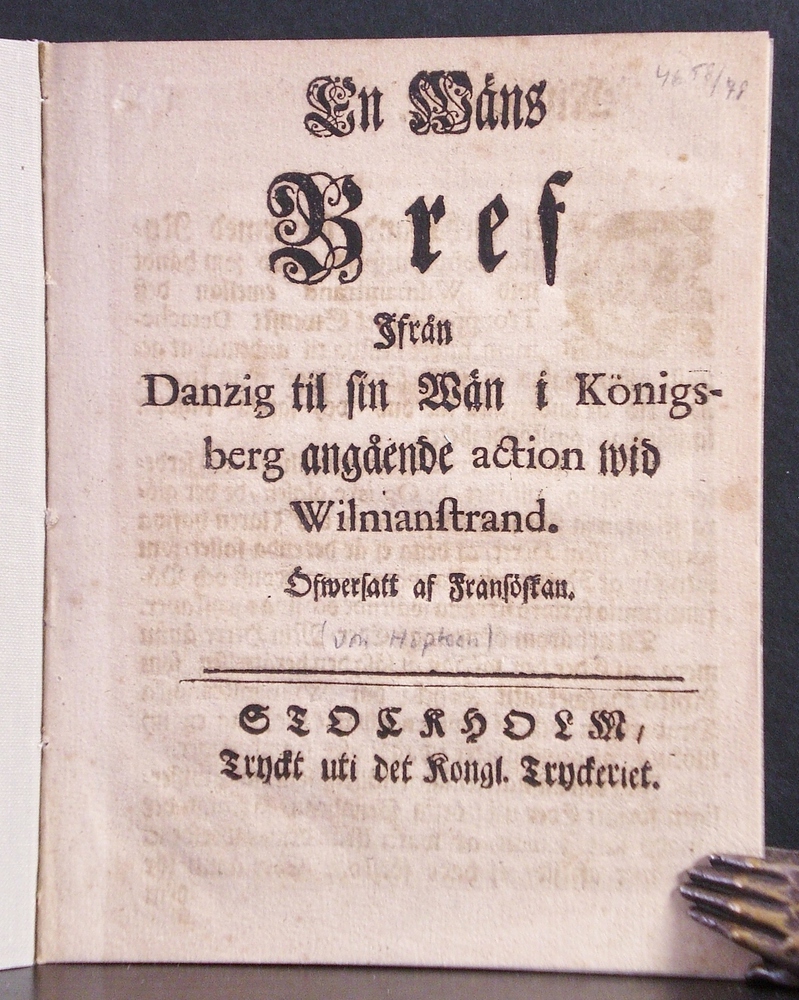 En Wäns
Bref
Ifrån
Danzig til sin Wän i Königs-
berg angående action wid
Wilmanstrand.
Öfwersatt af Fransöskan.
STOCKHOLM,
Tryckt uti det Kongl. Tryckeriet.